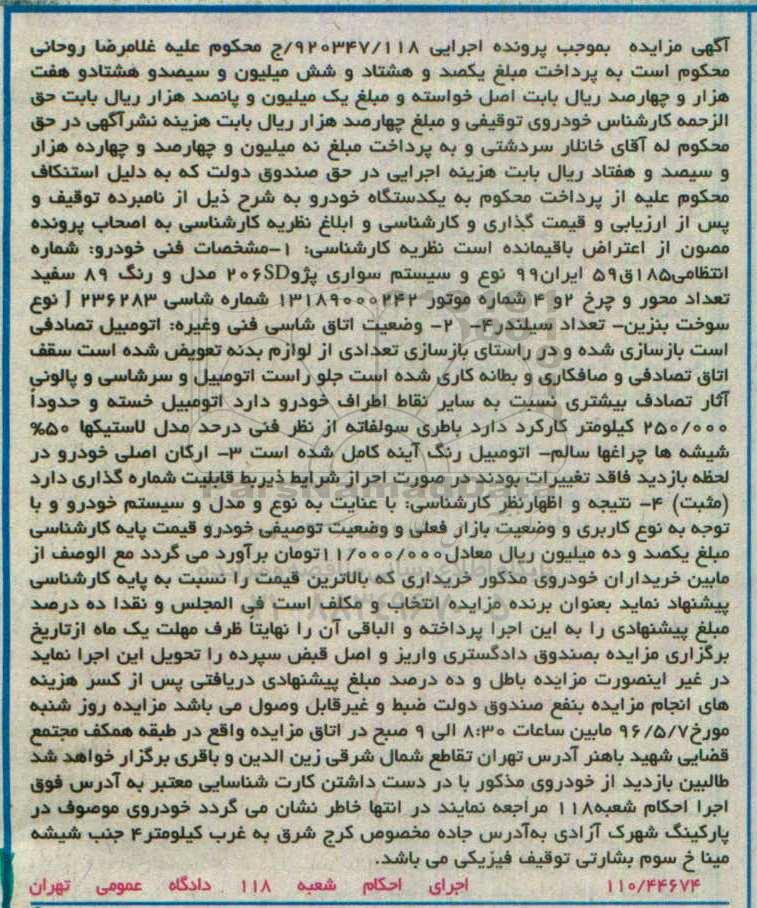 آگهی مزایده بموجب پرونده اجرایی ۹۲۰۳۴۷/۱۱۸/ج محکوم علیه غلامرضا روحانی
محکوم است به پرداخت مبلغ یکصد و هشتاد و شش میلیون و سیصدو هشتادو هفت
هزار و چهارصد ریال بابت اصل خواسته و مبلغ یک میلیون و پانصد هزار ریال بابت حق
الزحمه کارشناس خودروی توقیفی و مبلغ چهارصد هزار ریال بابت هزینه نشرآگهی در حق
محکوم له آقای خانلار سردشتی و به پرداخت مبلغ نه میلیون و چهارصد و چهارده هزار
و سیصد و هفتاد ریال بابت هزینه اجرایی در حق صندوق دولت که به دلیل استنکاف
محکوم علیه از پرداخت محکوم به یکدستگاه خودرو به شرح ذیل از نامبرده توقیف و
پس از ارزیابی و قیمت گذاری و کارشناسی و ابلاغ نظریه کارشناسی به اصحاب پرونده
مصون از اعتراض باقیمانده است نظریه کارشناسی: ۱-مشخصات فنی خودرو: شماره
انتظامی۱۸۵ق۵۹ ایران۹۹ نوع و سیستم سواری پژو۲۰۶SD مدل و رنگ ۸۹ سفید
تعداد محور و چرخ ۲و ۴ شماره موتور ۱۳۱۸۹۰۰۰۲۴۲ شماره شاسی J ۲۳۶۲۸۳ نوع
سوخت بنزین- تعداد سیلندر۴- ۲- وضعیت اتاق شاسی فنی وغیره: اتومبیل تصادفی
است بازسازی شده و در راستای بازسازی تعدادی از لوازم بدنه تعویض شده است سقف
اتاق تصادفی و صافکاری و بطانه کاری شده است جلو راست اتومبیل و سرشاسی و پالونی
آثار تصادف بیشتری نسبت به سایر نقاط اطراف خودرو دارد اتومبیل خسته و حدوداً
۲۵۰/۰۰۰ کیلومتر کارکرد دارد باطری سولفاته از نظر فنی درحد مدل لاستیکها ۵۰%
شیشه ها چراغها سالم- اتومبیل رنگ آینه کامل شده است ۳- ارکان اصلی خودرو در
لحظه بازدید فاقد تغییرات بودند در صورت احراز شرایط ذیربط قابلیت شماره گذاری دارد
(مثبت) ۴- نتیجه و اظهارنظر کارشناسی: با عنایت به نوع و مدل و سیستم خودرو و با
توجه به نوع کاربری و وضعیت بازار فعلی و وضعیت توصیفی خودرو قیمت پایه کارشناسی
مبلغ یکصد و ده میلیون ریال معادل۱۱/۰۰۰/۰۰۰تومان برآورد می گردد مع الوصف از
مابین خریداران خودروی مذکور خریداری که بالاترین قیمت را نسبت به پایه کارشناسی
پیشنهاد نماید بعنوان برنده مزایده انتخاب و مکلف است فی المجلس و نقدا ده درصد
مبلغ پیشنهادی را به این اجرا پرداخته و الباقی آن را نهایتاً ظرف مهلت یک ماه ازتاریخ
برگزاری مزایده بصندوق دادگستری واریز و اصل قبض سپرده را تحویل این اجرا نماید
در غیر اینصورت مزایده باطل و ده درصد مبلغ پیشنهادی دریافتی پس از کسر هزینه
های انجام مزایده بنفع صندوق دولت ضبط و غیرقابل وصول می باشد مزایده روز شنبه
مورخ۹۶/۵/۷ مابین ساعات ۸:۳۰ الی ۹ صبح در اتاق مزایده واقع در طبقه همکف مجتمع
قضایی شهید باهنر آدرس تهران تقاطع شمال شرقی زین الدین و باقری برگزار خواهد شد
طالبین بازدید از خودروی مذکور با در دست داشتن کارت شناسایی معتبر به آدرس فوق
اجرا احکام شعبه۱۱۸ مراجعه نمایند در انتها خاطر نشان می گردد خودروی موصوف در
پارکینگ شهرک آزادی به‌آدرس جاده مخصوص کرج شرق به غرب کیلومتر۴ جنب شیشه
مینا خ سوم بشارتی توقیف فیزیکی می باشد.
۱۱۰/۴۴۶۷۴ اجرای احکام شعبه ۱۱۸ دادگاه عمومی تهران